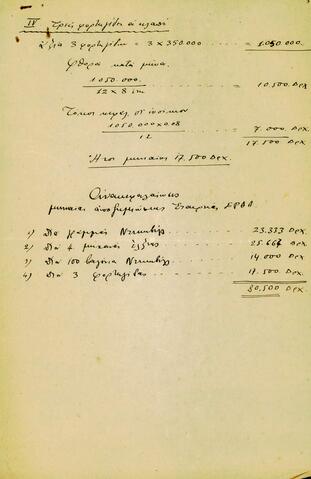 IV Τρεῖς φορτηγίδες
Ἀξία 3 φορτηγίδων = 3 × 350.000 ........ 1.050.000.
Φθορὰ κατὰ μῆνα.
1.050.000.
12 × 8 ἔτη ........ 10.500 Δρχ.
Τόκος κεφαλ.
1.050.000 × 0.08
12 ........ 7.000 Δρχ.
17.500 Δρχ.
Ἤτοι μηνιαίως 17.500 Δρχ.
Ἀνακεφαλαίωσις
μηνιαίας ἀποζημιώσεως Ἑταιρείας
1) Διὰ γραμμὰς Ντεκωβίλ ........ 23.333 Δρχ.
2) Διὰ 4 μηχανὰς ἕλξεως ........ 25.667 Δρχ.
3) Διὰ 100 βαγόνια Ντεκωβίλ ........ 14.000 Δρχ.
4) Διὰ 3 φορτηγίδας ........ 17.500 Δρχ.
80.500 Δρχ.